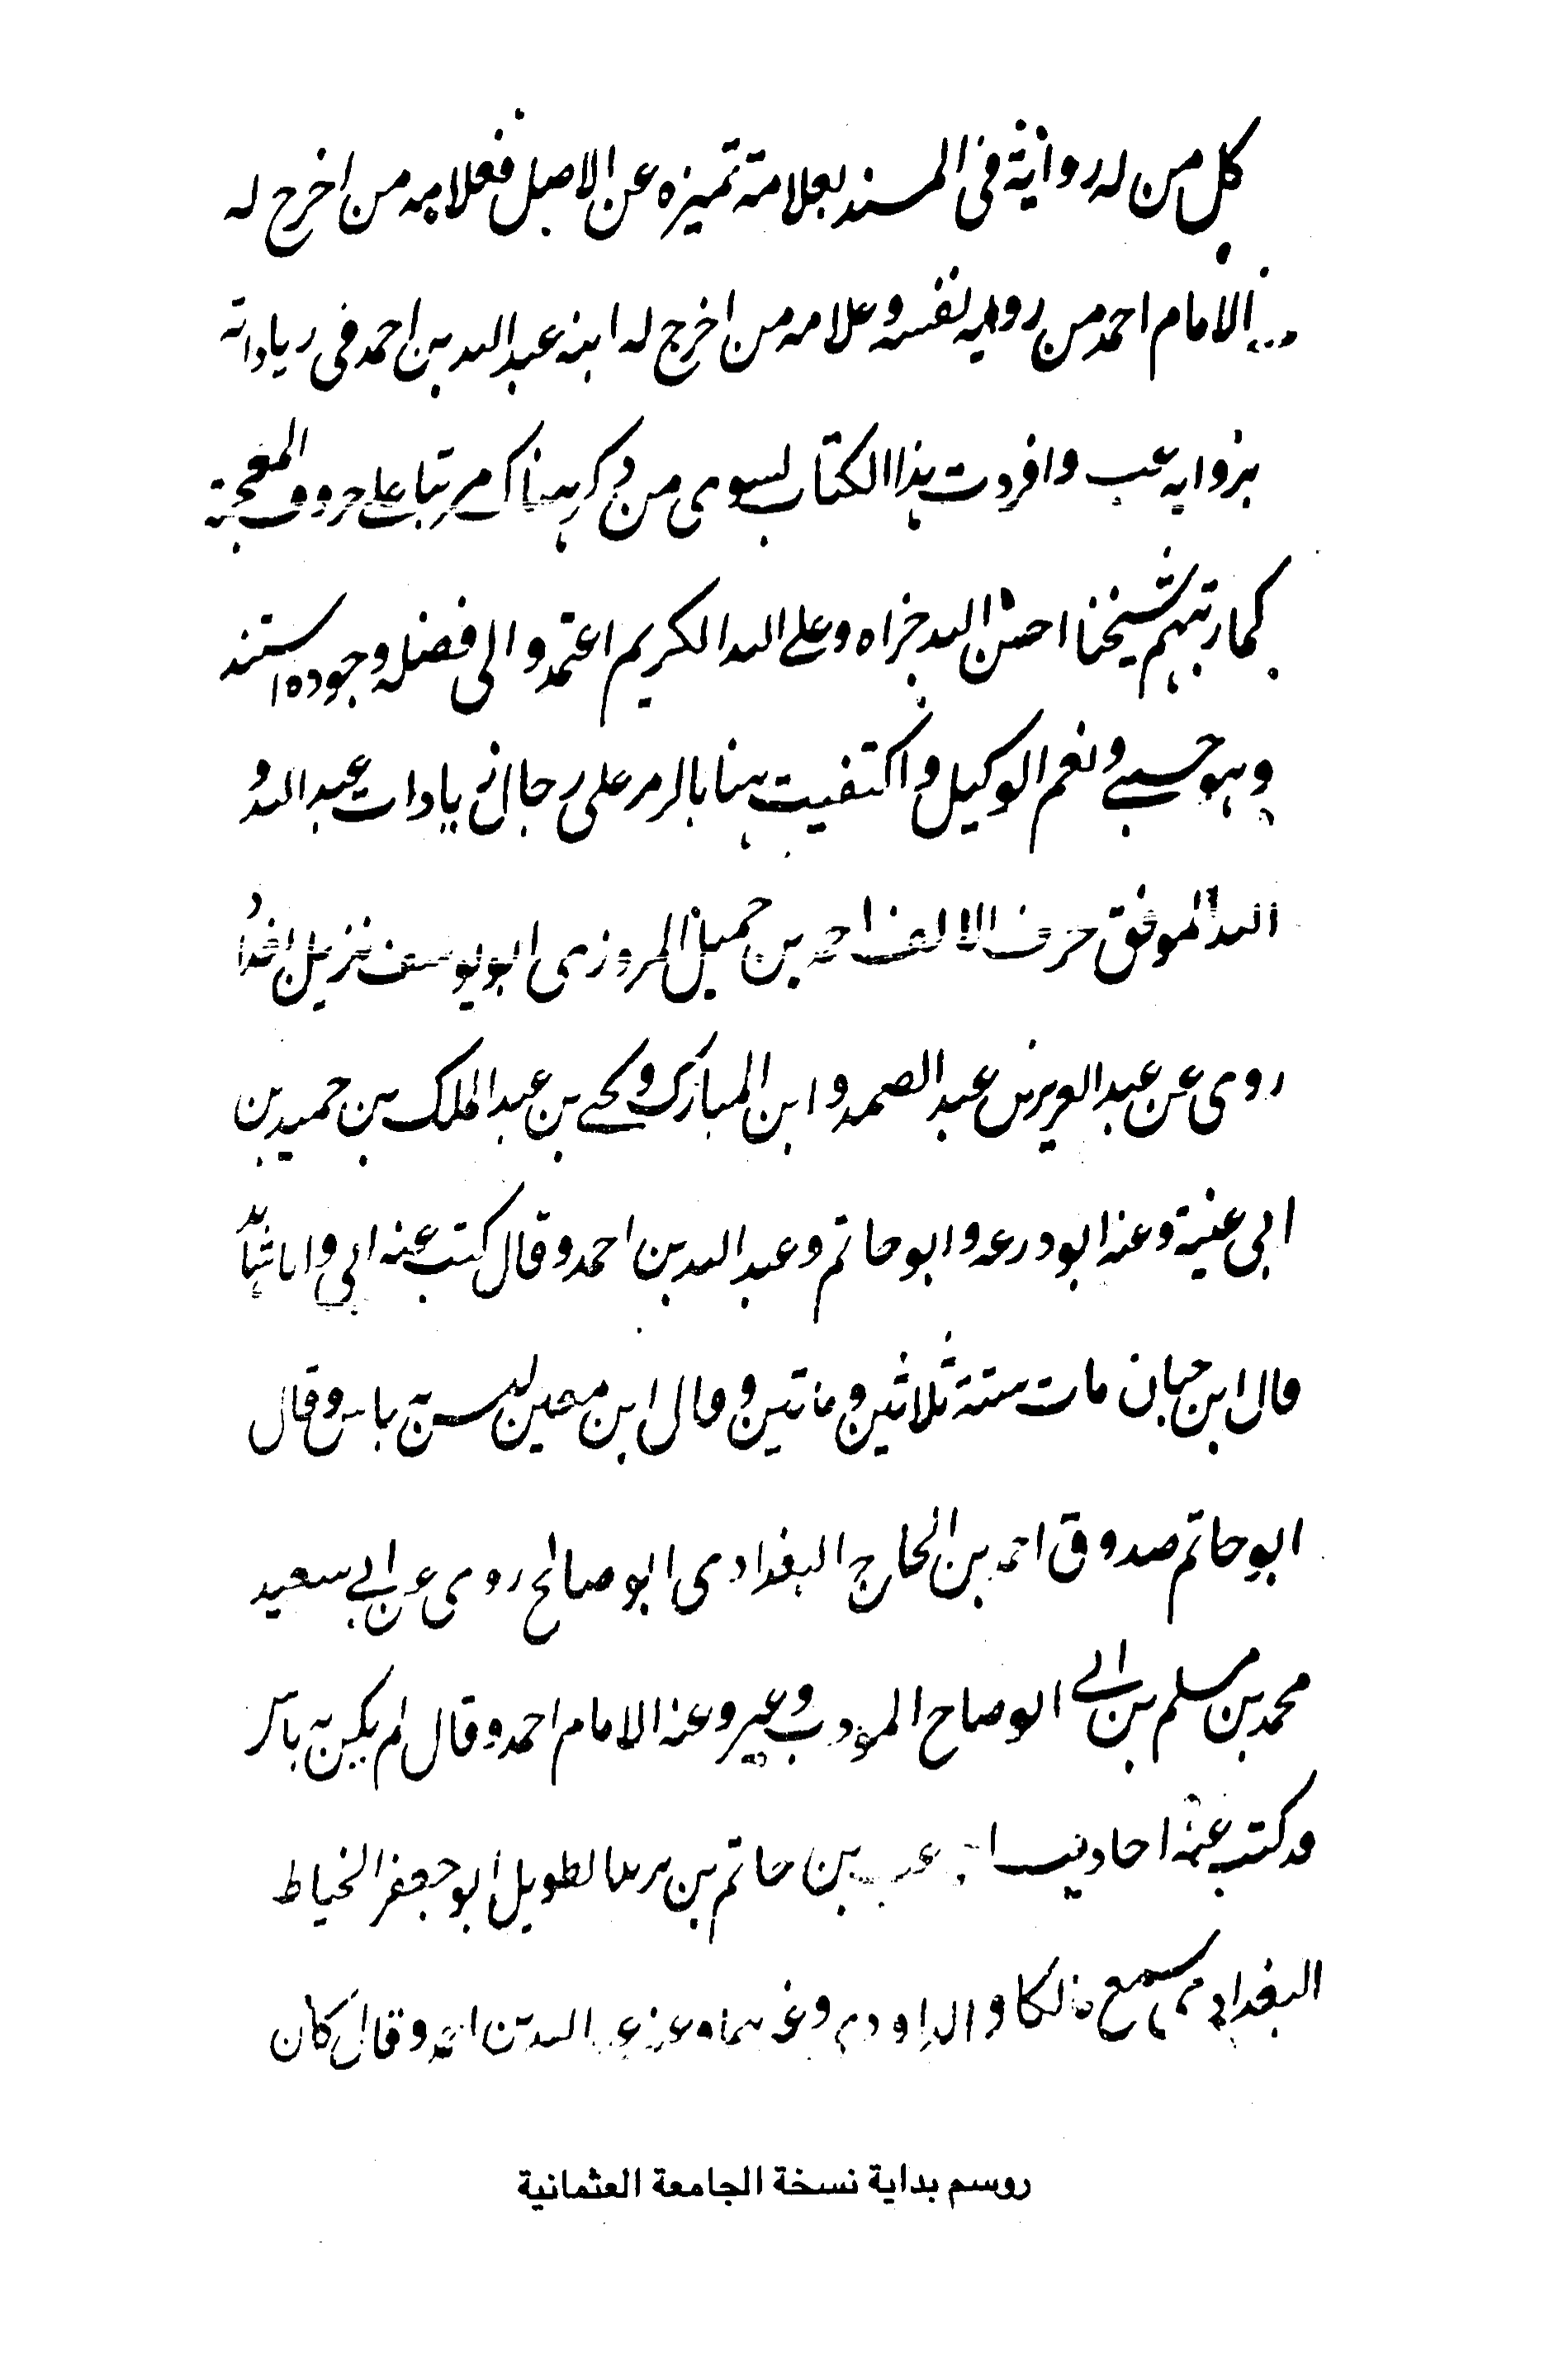 كل من له رواية فى المسند بعلامة تميزه عن الاصل فعلامه من اخرج له
الامام احمد من رواية نفسه وعلامه من اخرج له ابنه عبد الله بن احمد فى رياداته
بروايه عب وافردت هذا الكتاب لسوى من ذكر هناك مرتبا على حروف المعجمة
كما رتبهم شيخنا احسن الله جزاه وعلى الله الكريم اعتمد والى فضله وجوده استند
وهو حسبى ونعم الوكيل واكتفيت هنا بالرمر على رجال زيادات عبد الله و
الله الموفق حرف الالف احمد بن جميل المروزى ابو يوسف نزيل بغداد
روى عن عبد العزيز بن عبد الصمد وابن المبارك ويحى بن عبد الملك بن حميد بن
ابى غنية وعنه ابو درعه وابو حاتم وعبد الله بن احمد وقال كتب عنه ابى وانا شاهد
قال ابن حبان مات سنة ثلاثين ومائتين وقال ابن معين ليس به باس وقال
ابو حاتم صدوق احمد بن الحاج البغدادى ابو صالح روى عن ابى سعيد
محمد بن مسلم بن ابى الوضاح المودب وغير وعنه الامام احمد وقال لم يكن به باس
قد كتب عنه احاديث عب بن حاتم بن الطويل ابو جعفر الخياط
البغدادى سمع مالكا و وغيرهما وعنه عبد الله بن احمد وقال كان
روسم بداية نسخة الجامعة العثمانية